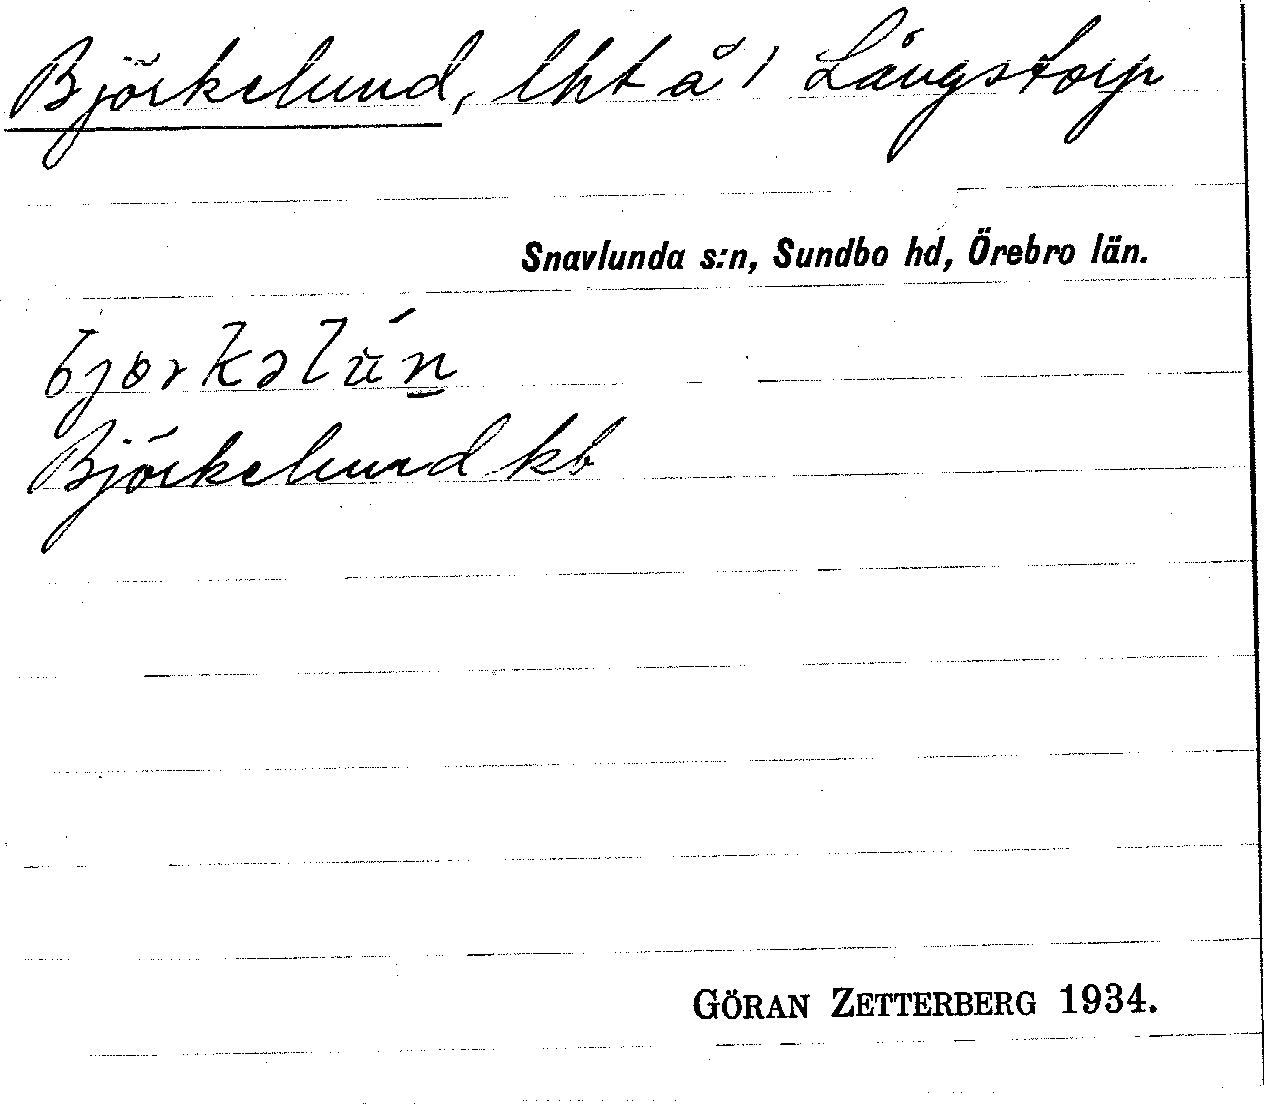 Björkelund, lht å 1 Långstorp
Snavlunda s:n, Sundbo hd, Örebro län.
bjørkəlún
Björkelund kb
GÖRAN ZETTERBERG 1934.